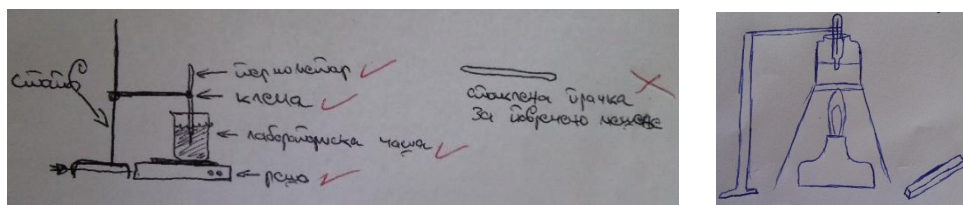 статив
термометар
клема
лабораториска чаша
решо
стаклена прачка
за повремено мешање